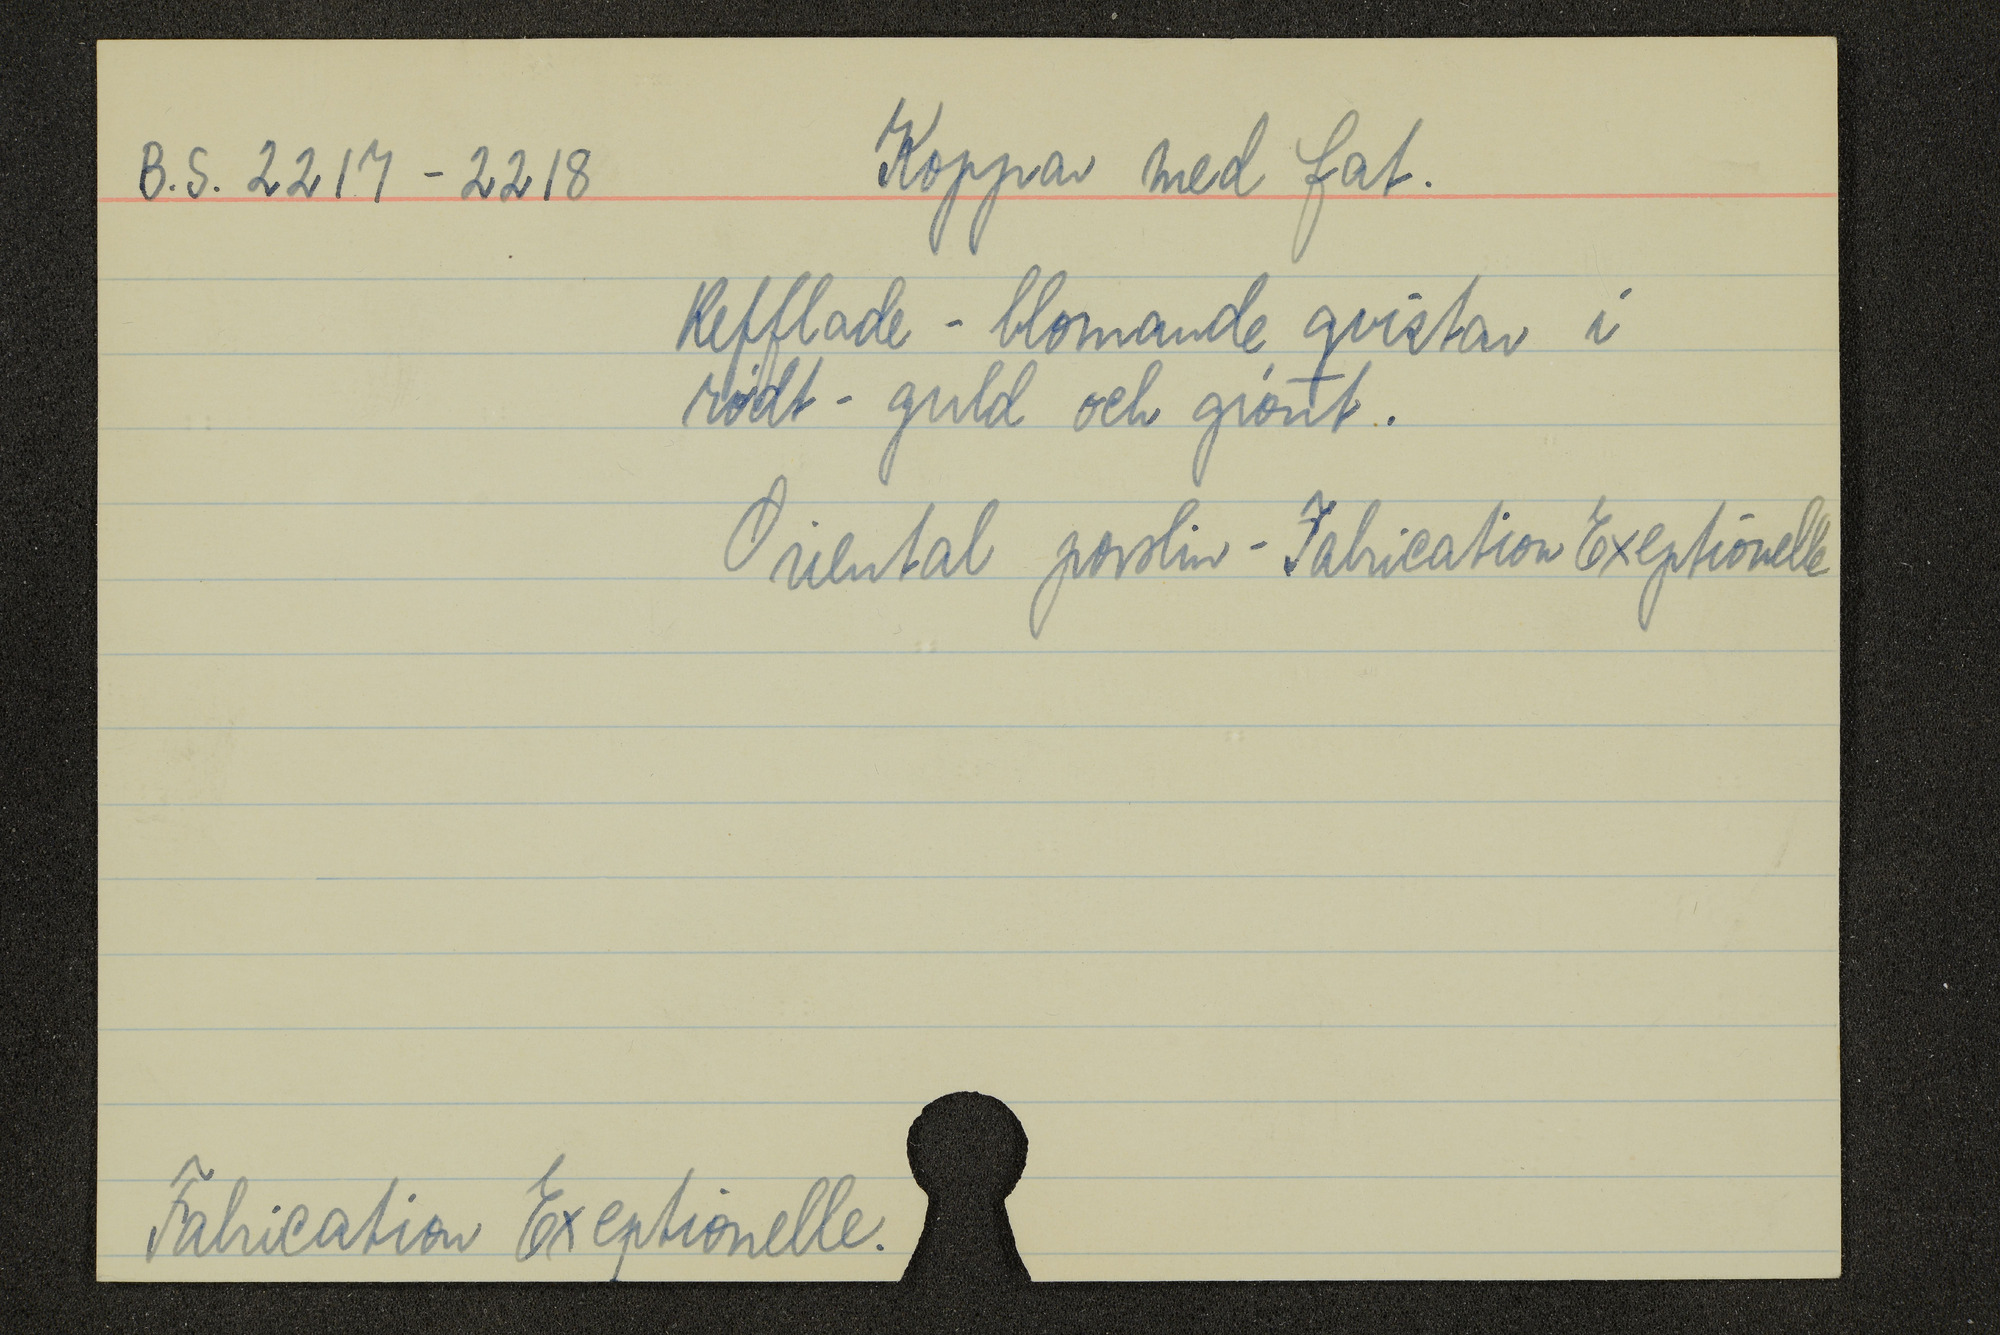 B.S. 2217 - 2218 Koppar med fat.
Refflade - blomande qvistar i
rödt - guld och grönt.
Oriental porslin - Fabrication Exeptionelle
Fabrication Exeptionelle.